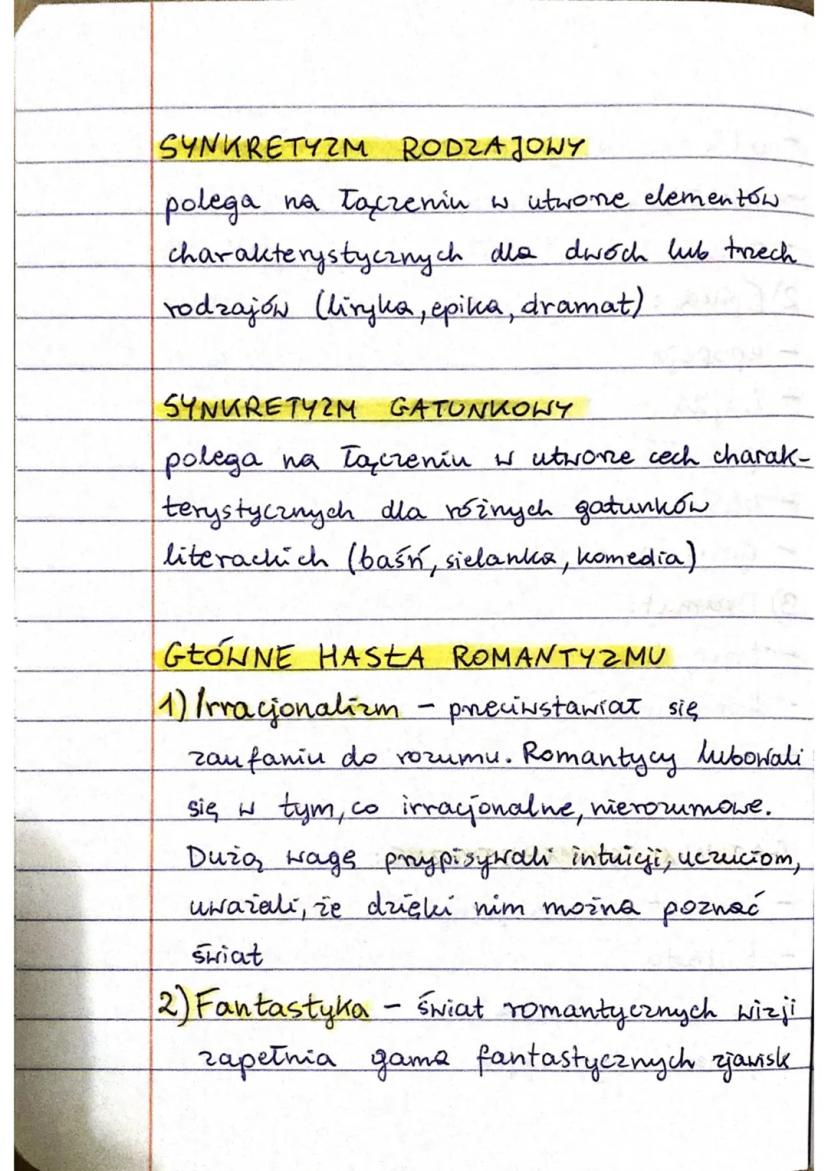 SYNKRETYZM RODZAJOWY
polega na łączeniu w utworze elementów
charakterystycznych dla dwóch lub trzech
rodzajów (liryka, epika, dramat)
SYNKRETYZM GATUNKOWY
polega na łączeniu w utworze cech charak-
terystycznych dla różnych gatunków
literackich (baśń, sielanka, komedia)
GŁÓWNE HASŁA ROMANTYZMU
1) Irracjonalizm – przeciwstawiał się
zaufaniu do rozumu. Romantycy lubowali
się w tym, co irracjonalne, nierozumowe.
Dużą wagę przypisywali intuicji, uczuciom,
uważali, że dzięki nim można poznać
świat
2) Fantastyka – świat romantycznych wizji
zapełnia gama fantastycznych zjawisk